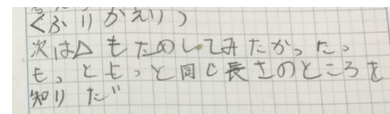 くふりかえり〉
次は△もためしてみたかった。
もっともっと同じ長さのところを
知りだ